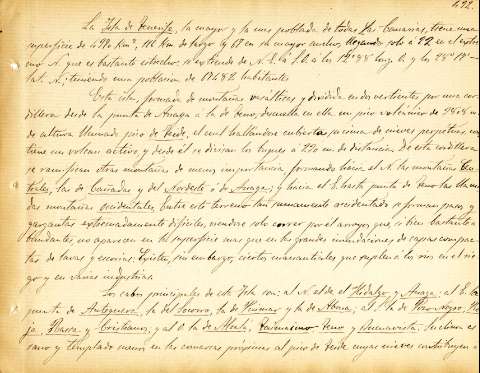 La Isla de Tenerife, la mayor y la mas poblada de todas las Canarias, tiene una
superficie de km², de largo y en su mayor ancho, llegando solo á 22 en el extre-
mo N. que es bastante estrecho; se extiende de N.E. á S.O. á los long. O. y los
lat. N.; teniendo una poblacion de habitantes.
Esta isla, formada de montañas basálticas y dividida en dos vertientes por una cor-
dillera desde la punta de Anaga á la de Teno, descuella en ella un pico volcánico de m.
de altura llamado pico de Teide, el cual hallandose cubierta su cima de nieves perpetuas, con-
tiene un volcan activo y desde él se divisan los buques á de distancia. De esta cordillera
se ramifican otras montañas de menos importancia, formando hácia el N. las montañas
las de Cañadas y del Nordeste ó de Anaga; y hácia el O. hasta punta de Teno las llama-
das montañas occidentales. Entre este terreno tan sumamente accidentado se forman pasos y
gargantas extremadamente dificiles, viendose solo correr por él arroyos, que, si bien bastante a-
bundantes, no aparecen en la superficie mas que en las grandes inundaciones de capas compac-
tas de lavas y escorias. Existen, sin embargo, ciertos manantiales que suplen á los rios en el rie-
go y en varias industrias.
Los cabos principales de esta Isla son: al N. el de Hidalgo y Anaga; al E. la
punta de Antequera, la del Socorro, la de Güimar y la de Abona; al S. la de
Rasca y Cristianos; y al O. la de Teno y Buenavista. Su clima es
sano y templado menos en las comarcas próximas al pico de Teide cuyas nieves contribuyen a